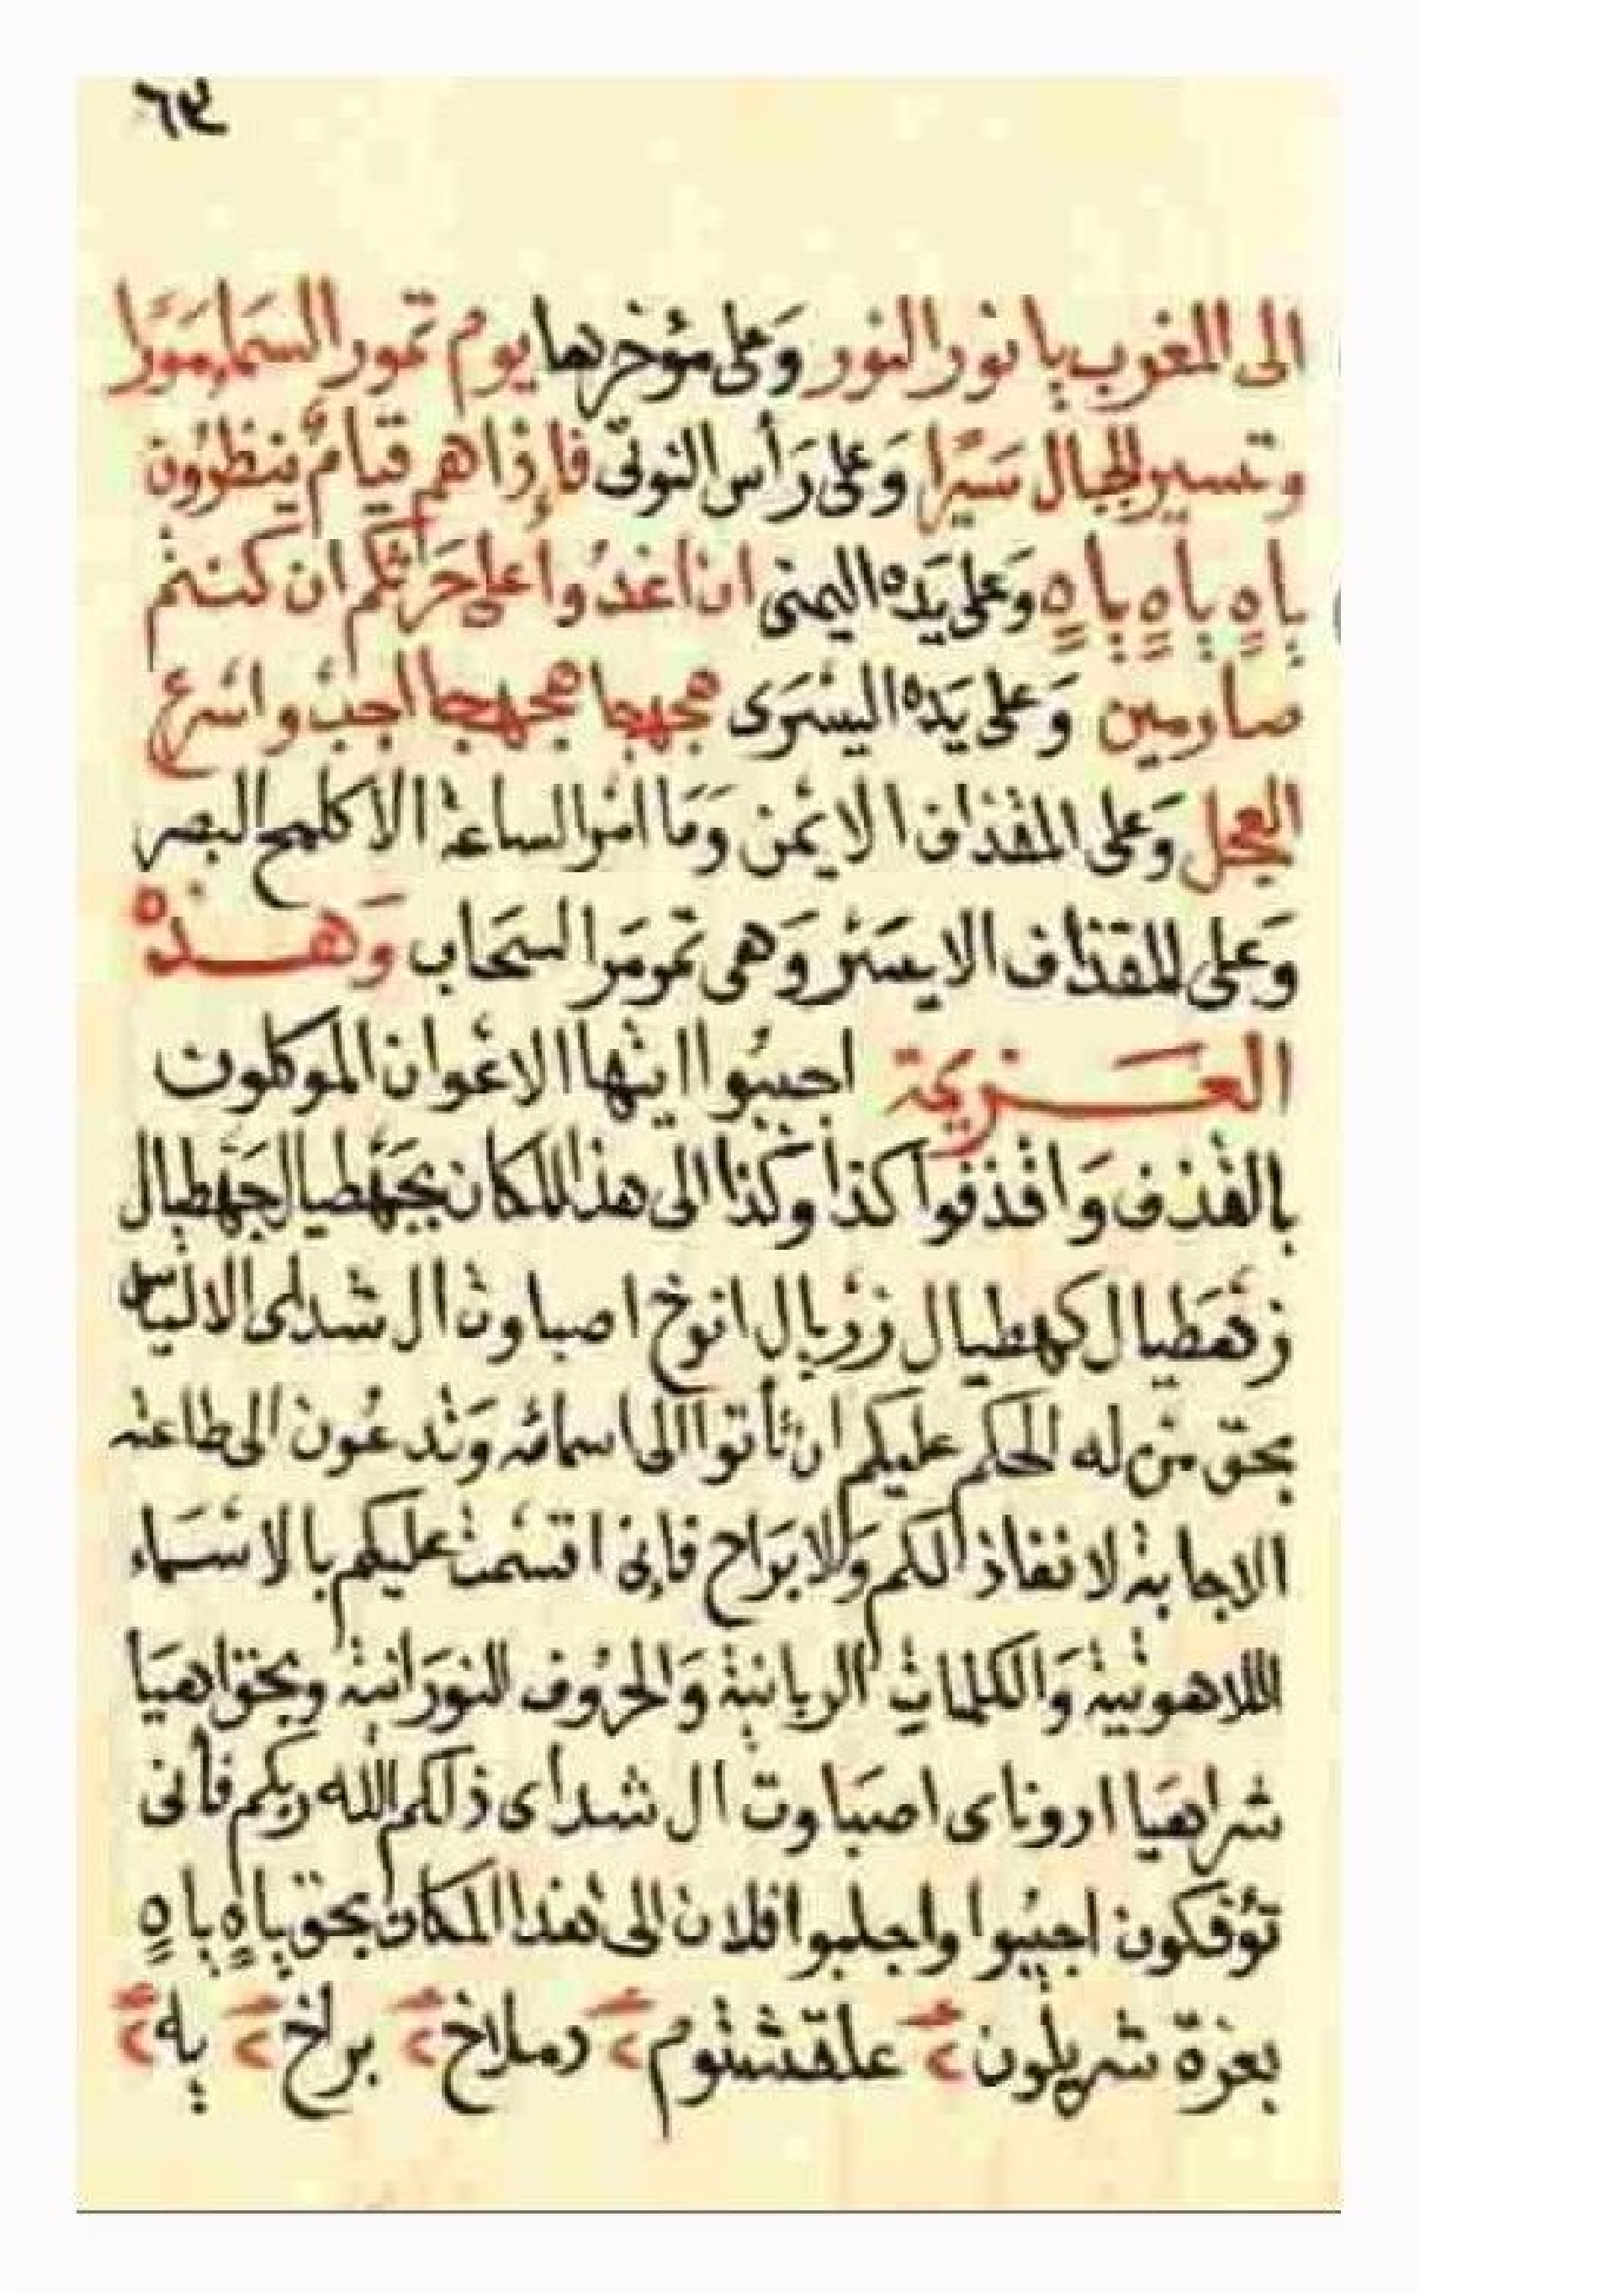 ٦٤
الى المغرب يا نور النور وَعَلى مُؤخرها يوم تَمور السَماء مَورًا
وتسير الجبال سَيْرًا وَعَلى رَأس النوتى فإذا هم قيامٌ ينظرُون
ياهٍ ياهٍ ياهٍ وَعَلى يَده اليمنى ان اغدُوا على حَرثكم ان كنتم
صارمين وَعَلى يَده اليسْرَى مجهجا مجهجا اجبْ واسْرع
العجل وَعَلى المقذاف الايْمن وَمَا امْر الساعة الا كلمح البصر
وَعَلى المقذاف الايسَر وَهى تمر مَر السحَاب وَهَذه
العَزيمة اجيبُوا ايتها الاعْوان الموكلون
بالقذف وَاقذفوا كذا وكَذا الى هذا المكان بجَهْطيال جَهْطيال
كهطيال زرْيال انوخ اصباوت ال شداى
بحق منْ له الحكم عليكم ان تأتوا الى اسمائه وَتدعُون الى طاعته
الاجابة لا نفاذ لكم وَلا بَرَاح فإنى اقسَمت عليكم بالاسْمَاء
اللاهوتية وَالكلماتِ الربانية وَالحرُوف النورَانية وبحق اهيَا
شراهيَا ادوناى اصبَاوت ال شداى ذلكم الله ربكم فأنى
تؤفكون اجيبُوا واجلبوا فلان الى هذا المكان بحق ياهٍ ياهٍ
بعزة ٢ ٢ دملاخ ٢ براخ ٢ يله ٢